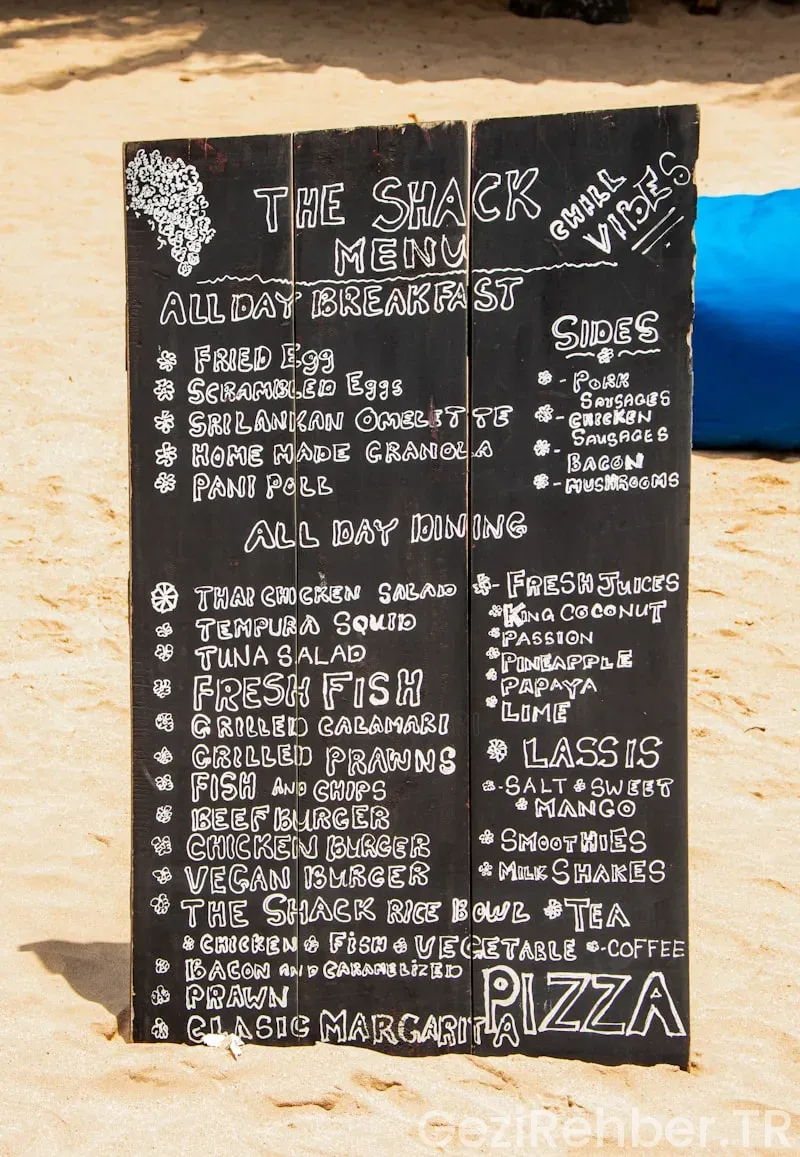 THE SHACK
MENU
CHILL
VIBES
ALL DAY BREAKFAST
FRIED Egg
SCRAMBLED Eggs
SRILANKAN OMELETTE
HOME MADE GRANOLA
PANI POLL
SIDES
- PORK
SAUSAGES
- CHICKEN
SAUSAGES
- BACON
- MUSHROOMS
ALL DAY DINING
THAI CHICKEN SALAD
TEMPURA SQUID
TUNA SALAD
FRESH FISH
GRILLED CALAMARI
GRILLED PRAWNS
FISH AND CHIPS
BEEF BURGER
CHICKEN BURGER
VEGAN BURGER
THE SHACK RICE BOWL
CHICKEN FISH VEGETABLE
BACON AND CARAMELIZED
PRAWN
CLASIC MARGARITA
PIZZA
- FRESH JUICES
KING COCONUT
PASSION
PINEAPPLE
PAPAYA
LIME
LASSIS
- SALT SWEET
MANGO
SMOOTHIES
MILK SHAKES
TEA
- COFFEE
GeziRehber.TR